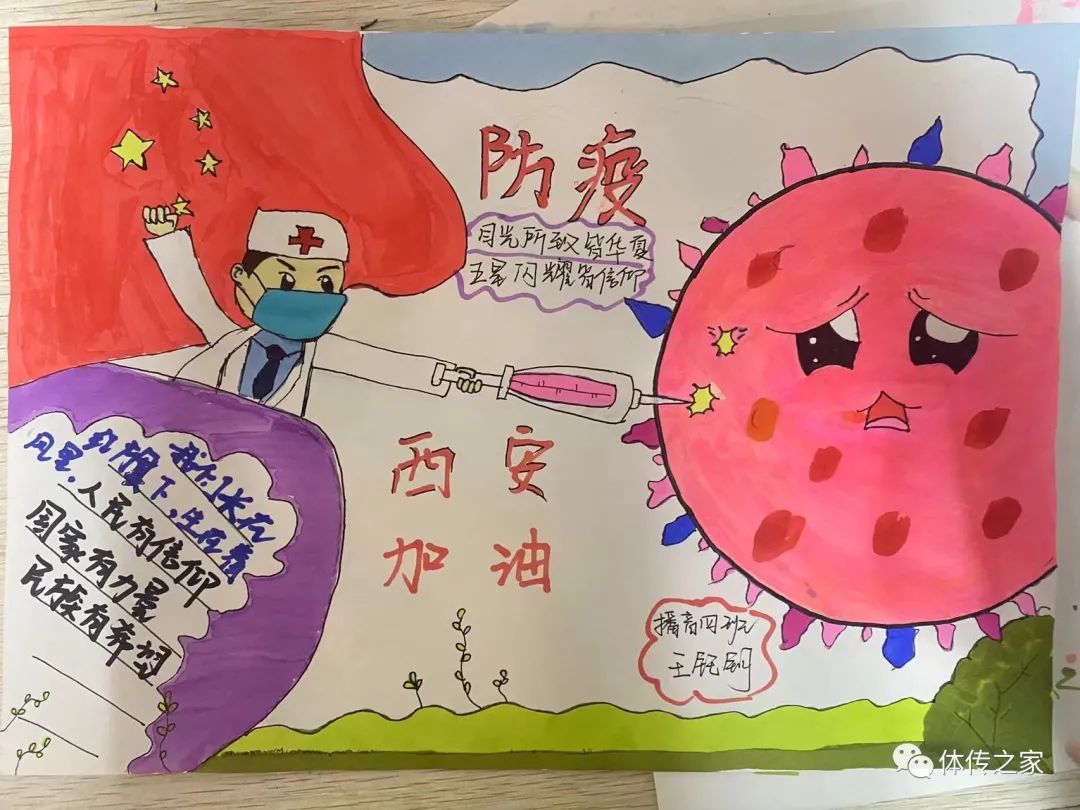 防疫
目光所致皆华夏
五星闪耀皆信仰
西安
加油
我们长在
红旗下,生在春
风里,人民有信仰
国家有力量
民族有希望
播音四班
王
体传之家